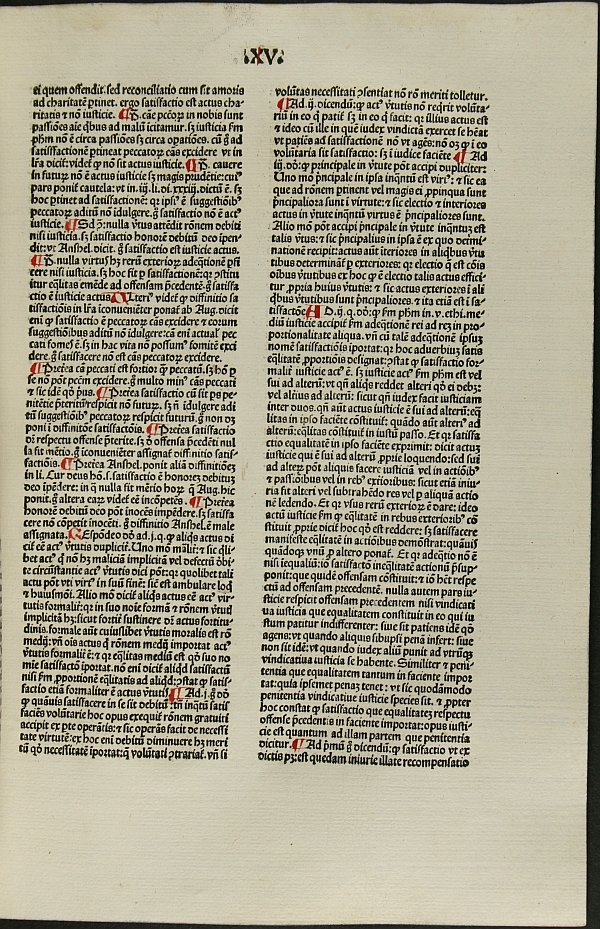 .XV.
ei quem offendit. sed reconciliatio cum sit amoris
ad charitatē ꝑtinet. ergo satisfactio est actus cha-
ritatis ⁊ nō iusticie. ¶ P. cāe pctōꝝ in nobis sunt
passiōes aīe qͥbus ad malū icitamur. sꝫ iusticia ẜm
pħm nō ē circa passiōes sꝫ circa oꝑatiōes. cū g̊ ad
satisfactionē ꝑtineat peccatoꝝ cās excidere vt in
lr̄a dicit᷑: videt᷑ ꝙ nō sit actus iusticie. ¶ P. cauere
in futuꝝ nō ē actus iusticie sꝫ magis prudētie: cuiꝰ
pars ponit᷑ cautela: vt in .iij. li. di. xxxiij. dictū ē. sꝫ
hoc ꝑtinet ad satisfactionē: qꝛ ipsiꝰ ē suggestiōibꝰ
peccatoꝝ aditū nō īdulgere. g̊ satisfactio nō ē actꝰ
iusticie. ¶ Sꝫ ꝯͣ. nulla v̓tus attēdit rōnem debiti
nisi iusticia. sꝫ satisfactio honorē debitū deo īpen-
dit: vt Anshel. dicit. g̊ satisfactio est iusticie actus.
¶ P. nulla virtus hꝫ reꝝ exterioꝝ adeq̄tionē ꝑfi
cere nisi iusticia. sꝫ hoc fit ꝑ satisfactionē: qꝛ ꝯstitu
it᷑ eq̄litas emēde ad offensam p̄cedentē. g̊ satisfa-
ctio ē iusticie actus. ¶ Ulteriꝰ videt᷑ ꝙ diffinitio sa
tisfactiōis in lr̄a īcōuenienter ponat᷑ ab Aug. dicit
eni ꝙ satisfactio ē peccatoꝝ cās excidere ⁊ eorum
suggestiōibus aditū nō īdulgere: cā eni actual᷑ pec
cati fomes ē. sꝫ in hac vita nō possumꝰ fomitē exci
dere. g̊ satisfacere nō est cās peccatoꝝ excidere.
¶ Preterea cā peccati est fortior ꝙ peccatū. sꝫ hō ꝑ
se nō pōt pctm̄ excidere. g̊ multo minꝰ cās peccati
⁊ sic idē qd̓ pͥus. ¶ Preterea satisfactio cū sit ꝑs pe-
nitētie p̄teritū respicit nō futuꝝ. sꝫ nō īdulgere adi
tū suggestiōibꝰ peccatoꝝ respicit futurū. g̊ non dꝫ
poni ī diffinitōe satisfactiōis. ¶ Preterea satisfactio
dr̄ respectu offense p̄terite. sꝫ ꝺ̓ offensa p̄cedēti nul
la fit mētio. g̊ īcōuenienter assignat᷑ diffinitio satis-
factiōis. ¶ Preterea Anshel. ponit aliā diffinitionē
in li. Cur deus hō .s. satisfactio ē honorē debituꝫ
deo īpēdere: in q̄ nulla fit mētio hoꝝ q̄ Aug. hic
ponit. g̊ altera eaꝝ videt᷑ eē incōpetēs. ¶ Preterea
honorē debitū deo pōt inocēs impēdere. sꝫ satisfa
cere nō cōpetit inocēti. g̊ diffinitio Anshel. ē male
assignata. ¶ Respōdeo dd̓ ad .j. q. ꝙ aliqͥs actus di
cit᷑ eē actꝰ v̓tutis duplicit᷑. Uno mō māl᷑r: ⁊ sic qͥli-
bet actꝰ qͥ nō hꝫ maliciā implicitā vel defectū ꝺ̓bi-
te circūstantie actꝰ v̓tutis dici pōt: qꝛ quolibet tali
actu pōt vti virtꝰ in suū finē: sic̄ est ambulare loqͥ
⁊ huiusmōi. Alio mō dicit᷑ aliqͥs actus eē actꝰ vir-
tutis formalit᷑: qꝛ in suo noīe formā ⁊ rōnem v̓tutis
implicitā hꝫ: sicut fortit᷑ sustinere dr̄ actus fortitu-
dinis. formale aūt cuiuslibet v̓tutis moralis est rō
medij: vn̄ oīs actus qͥ rōnem medij importat actꝰ
v̓tutis formalit᷑ ē: ⁊ qꝛ eq̄litas mediū est qd̓ suo no
mie satisfactō īportat. nō eni dicit᷑ aliqͥd satisfactū
nisi ẜm ꝓportionē eq̄litatis ad aliqͥd: ꝯstat ꝙ satis-
factio etiā formaliter ē actus v̓tutis. ¶ Ad .j. g̊ dd̓
ꝙ quāuis satisfacere in se sit debitū: tn̄ inqͣtū satis
faciēs volūtarie hoc opus exequit᷑ rōnem gratuiti
accipit ex ꝑte operātis: ⁊ sic operās facit de necessi
tate virtutē: ex hoc eni debitū diminuere hꝫ meri
tū qd̓ necessitatē īportat: q̄ volūtati ꝯtrariat᷑. vn̄ si
volūtas necessitati ꝯsentiat nō rō meriti tolletur.
¶ Ad .ij. dicendū: ꝙ actꝰ v̓tutis nō reqͥrit volūta-
riū in eo qͥ patit᷑ sꝫ in eo qͥ facit: qꝛ illius actus est
⁊ ideo cū ille in quē iudex vindictā exercet se hēat
vt patiēs ad satisfactionē nō vt agēs: nō oꝫ ꝙ ī eo
volūtaria sit satisfactio: sꝫ ī iudice faciēte. ¶ Ad
.iij. dd̓: ꝙ principale in v̓tute pōt accipi dupliciter:
Uno mō pͥncipale in ipsa inqͣntū est virtꝰ: ⁊ sic ea
que ad rōnem ꝑtinent vel magis ei ꝓpinqua sunt
pͥncipaliora sunt ī virtute: ⁊ sic electio ⁊ interiores
actus in v̓tute inqͣntū virtus ē pͥncipaliores sunt.
Alio mō pōt accipi pͥncipale in v̓tute inqͣntuꝫ est
talis v̓tus: ⁊ sic pͥncipalius in ipsa ē ex quo determi-
nationē recipit: actus aūt īteriores in aliqͥbus v̓tu
tibus determinant᷑ ꝑ exteriores: qꝛ electio q̄ est cōis
oībus v̓tutibus ex hoc ꝙ ē electio talis actus effici
tur ꝓpria huius v̓tutis: ⁊ sic actus exteriores ī ali
qͥbus v̓tutibus sunt pͥncipaliores: ⁊ ita etiā est ī sa-
tisfactōe. ¶ AD .ij. q. dd̓: ꝙ ẜm pħm in .v. ethi. me-
diū iusticie accipit᷑ ẜm adeq̄tionē rei ad reꝫ in pro-
portionalitate aliqua. vn̄ cū talē adeq̄tionē ipsuꝫ
nomē satisfactiōis īportat: qꝛ hoc adverbiuꝫ satis
eq̄litatē ꝓportiōis designat: ꝯstat ꝙ satisfactio for-
malit᷑ iusticie actꝰ ē. sꝫ iusticie actꝰ ẜm pħm est vel
sui ad alterū: vt qn̄ aliqͥs reddet alteri qd̓ ei debꝫ:
vel alius ad alterū: sicut qn̄ iudex facit iusticiam
inter duos. qn̄ aūt actus iusticie ē sui ad alterū: eq̄
litas in ipso faciēte cōstituit᷑: quādo aūt alteriꝰ ad
alterū: eq̄litas cōstituit᷑ in iustū passo. Et qꝛ satisfa
ctio equalitatē in ipso faciēte exprimit: dicit actuꝫ
iusticie qui ē sui ad alterū ꝓprie loquendo: sed suiꝰ
ad alteꝝ pōt aliquis facere iusticiā vel in actiōibꝰ
⁊ passiōibus vel in rebꝰ exterioribus: sicut etiā iniu-
ria fit alteri vel subtrahēdo res vel ꝑ aliquā actio
nē ledendo. Et qꝛ vsus rerū exterioꝝ ē dare: ideo
actꝰ iusticie ẜm ꝙ eq̄litatē in rebus exterioribꝰ cō
stituit ꝓprie dicit᷑ hoc qd̓ est reddere: sꝫ satisfacere
manifeste eq̄litatē in actiōibus demōstrat: quāuis
quādoqꝫ vnū ꝓ altero ponat᷑. Et qꝛ adeq̄tio nō ē
nisi īequaliū: iō satisfactō ineq̄litatē actionū p̄sup-
ponit: que quidē offensam cōstituit: ⁊ iō hēt respe
ctū ad offensam precedentē. nulla autem pars iu-
sticie respicit offensam precedentem nisi vindicati
ua iusticia que equalitatem constituit in eo qui iu
stum patitur indifferenter: siue sit patiens idē qd̓
agens: vt quando aliquis sibiipsi penā infert: siue
non sit idē: vt quando iudex aliū punit ad vtrūqꝫ
vindicatiua iusticia se habente. Similiter ⁊ peni-
tentia que equalitatem tantum in faciente impor-
tat: quia ipsemet penaꝫ tenet: vt sic quodāmodo
penitentia vindicatiue iusticie species sit. ⁊ ꝓpter
hoc constat ꝙ satisfactio que equalitateꝫ respectu
offense p̄cedentis in faciente importat: opus iusti-
cie est quantum ad illam partem que penitentia
dicitur. ¶ Ad pͥmū g̊ dicendū: ꝙ satisfactio vt ex
dictis pꝫ: est quedam iniurie illate recompensatio